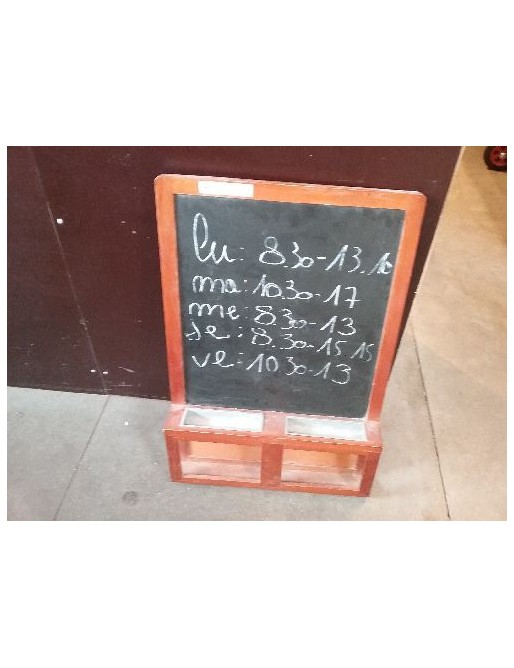 lu: 8.30-13.10
ma: 10.30-17
me: 8.30-13
je: 8.30-15.15
ve: 10 30-13